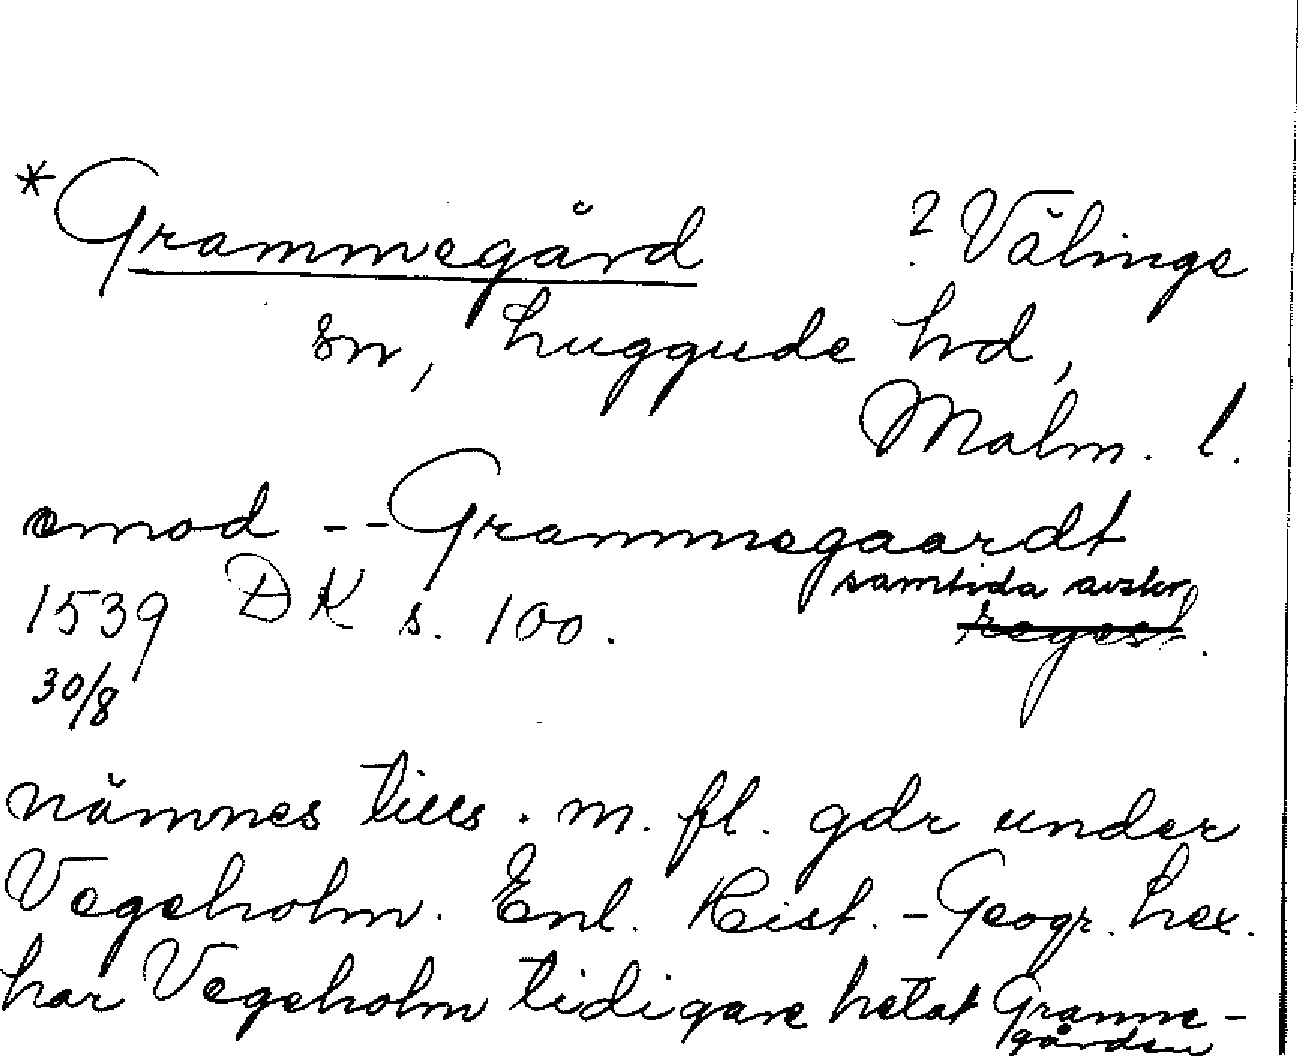 *Grammegård ? Välinge
sn, Luggude hd,
Malm. l.
emod -- Grammegaardt
samtida avskr
1539 DK s. 100. regest.
30/8
nämnes tills. m. fl. gdr under
Vegeholm. Enl. Hist.-Geogr. Lex.
har Vegeholm tidigare hetat Gramme-
gården